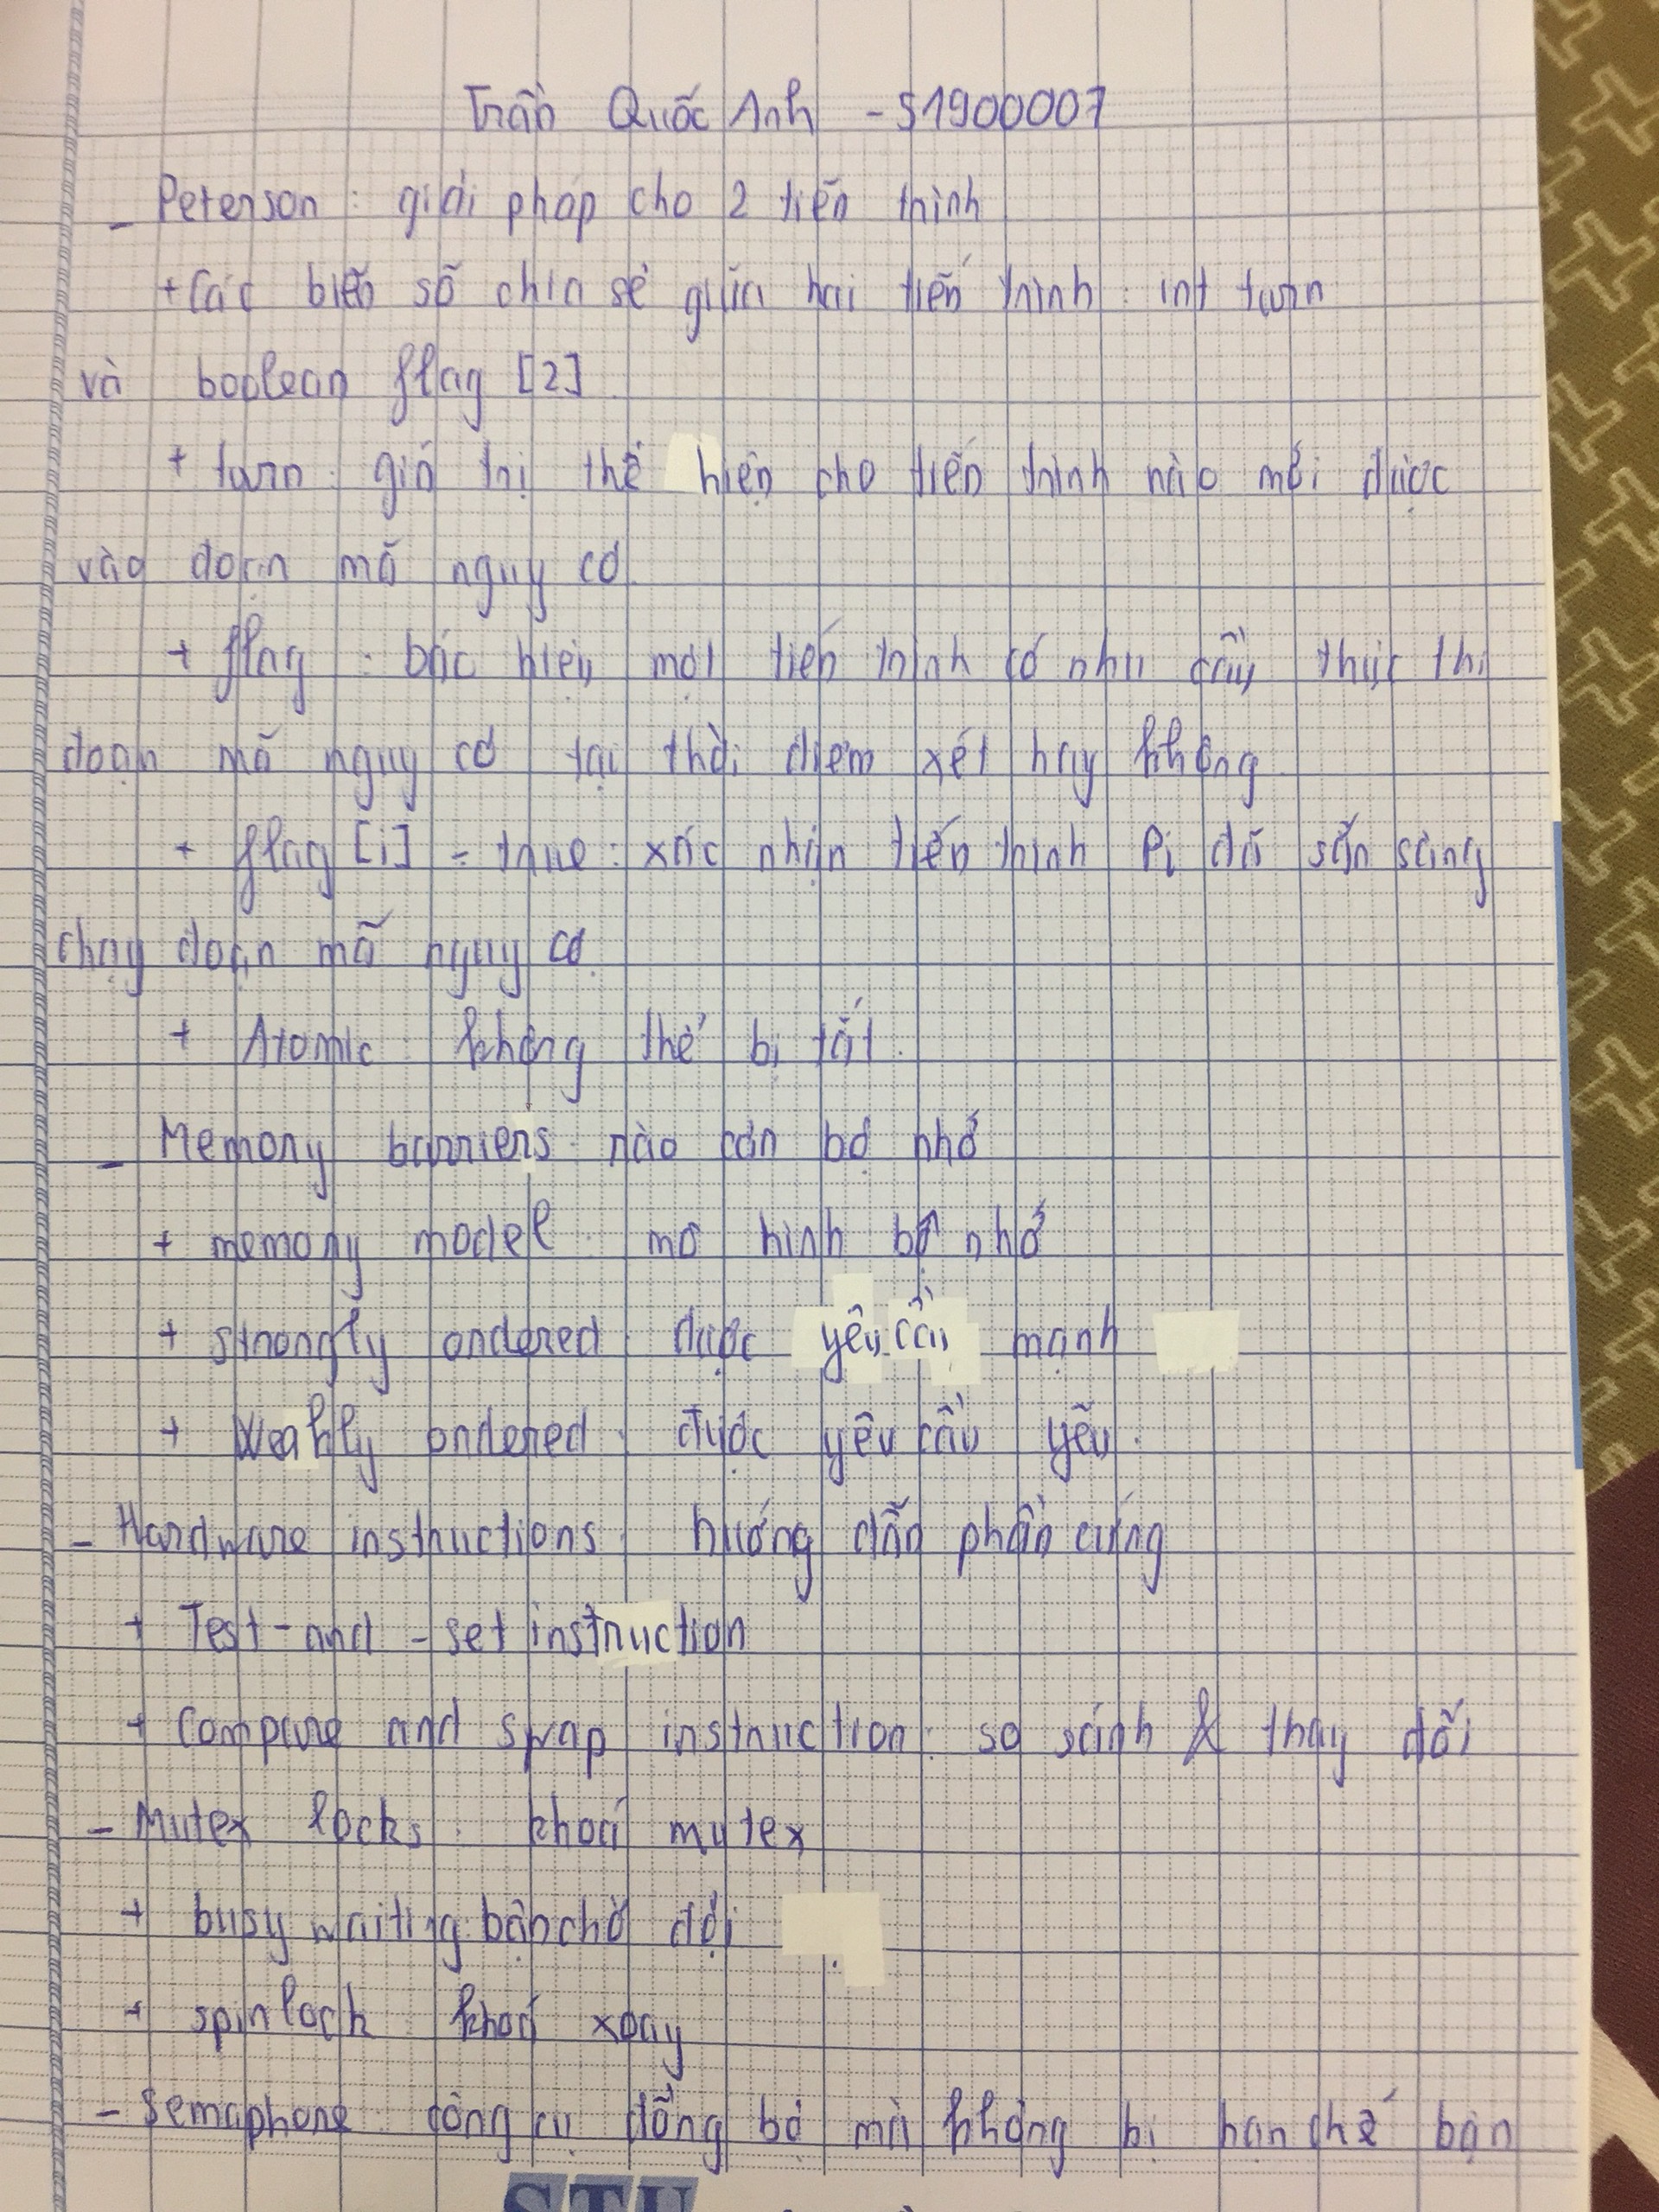 Trần Quốc Anh - 51900007
- Peterson : giải pháp cho 2 tiến trình
+ Các biến số chia sẻ giữa hai tiến trình : int turn
và boolean flag [2]
+ turn : giá trị thể hiện cho tiến trình nào mới được
vào đoạn mã nguy cơ
+ flag : báo hiệu một tiến trình có nhu cầu thực thi
đoạn mã nguy cơ tại thời điểm xét hay không
+ flag [i] = true : xác nhận tiến trình Pi đã sẵn sàng
chạy đoạn mã nguy cơ.
+ Atomic : không thể bị tắt.
- Memory barriers : rào cản bộ nhớ
+ memory model : mô hình bộ nhớ
+ strongly ordered : được yêu cầu mạnh
+ Weakly ordered : được yêu cầu yếu.
- Hardware instructions : hướng dẫn phần cứng
+ Test - and - set instruction
+ Compare and swap instruction : so sánh & thay đổi
- Mutex locks : khoá mutex
+ busy waiting : bận chờ đợi
+ spinlock : khoá xoay
- Semaphore : công cụ đồng bộ mà không bị hạn chế bận
STU